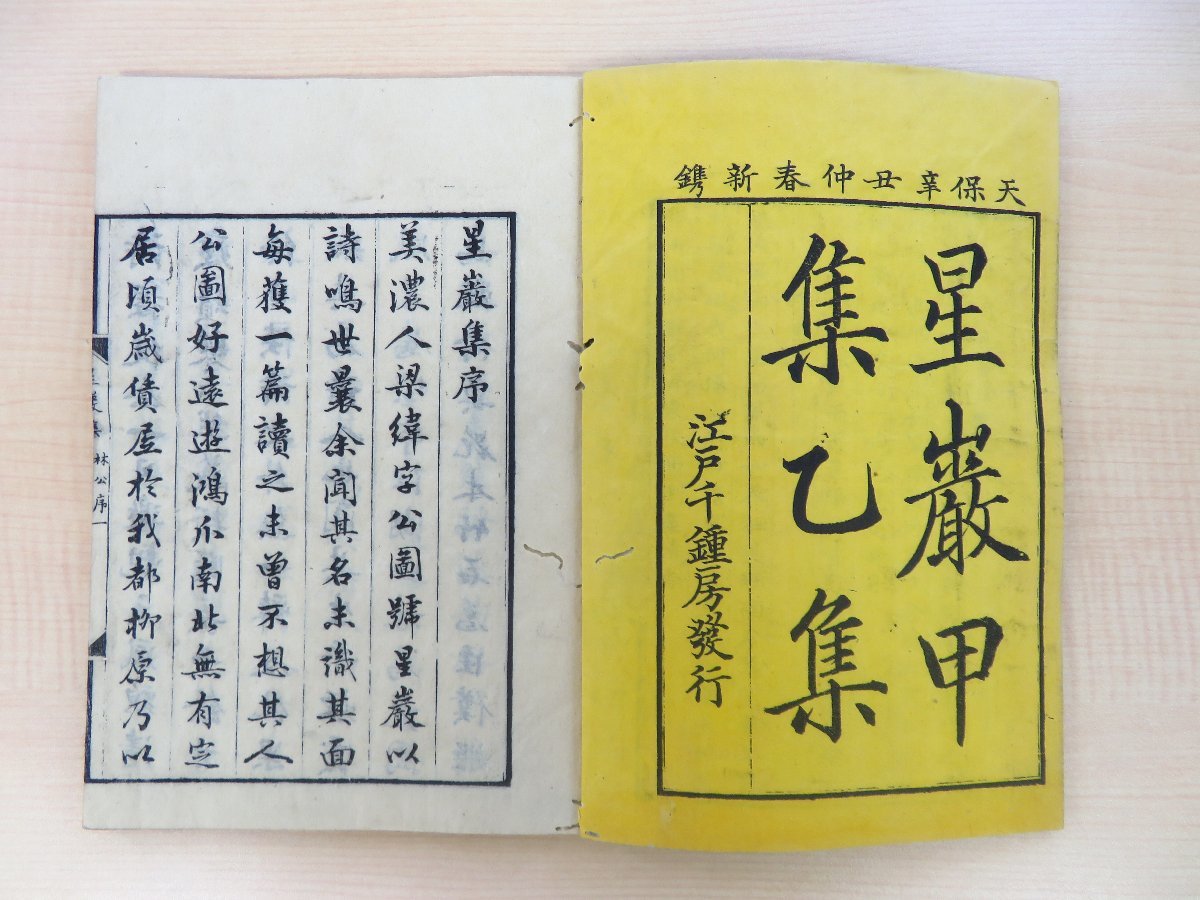 天保辛丑仲春新鐫
星巖甲
集乙集
江戸千鍾房發行
星巖集序
美濃人梁緯字公圖號星巖以
詩鳴世曩余聞其名未識其面
每獲一篇讀之未曾不想其人
公圖好遠遊鴻爪南北無有定
居頃歲賃屋於我都柳原乃以
星巖集 林公序 一